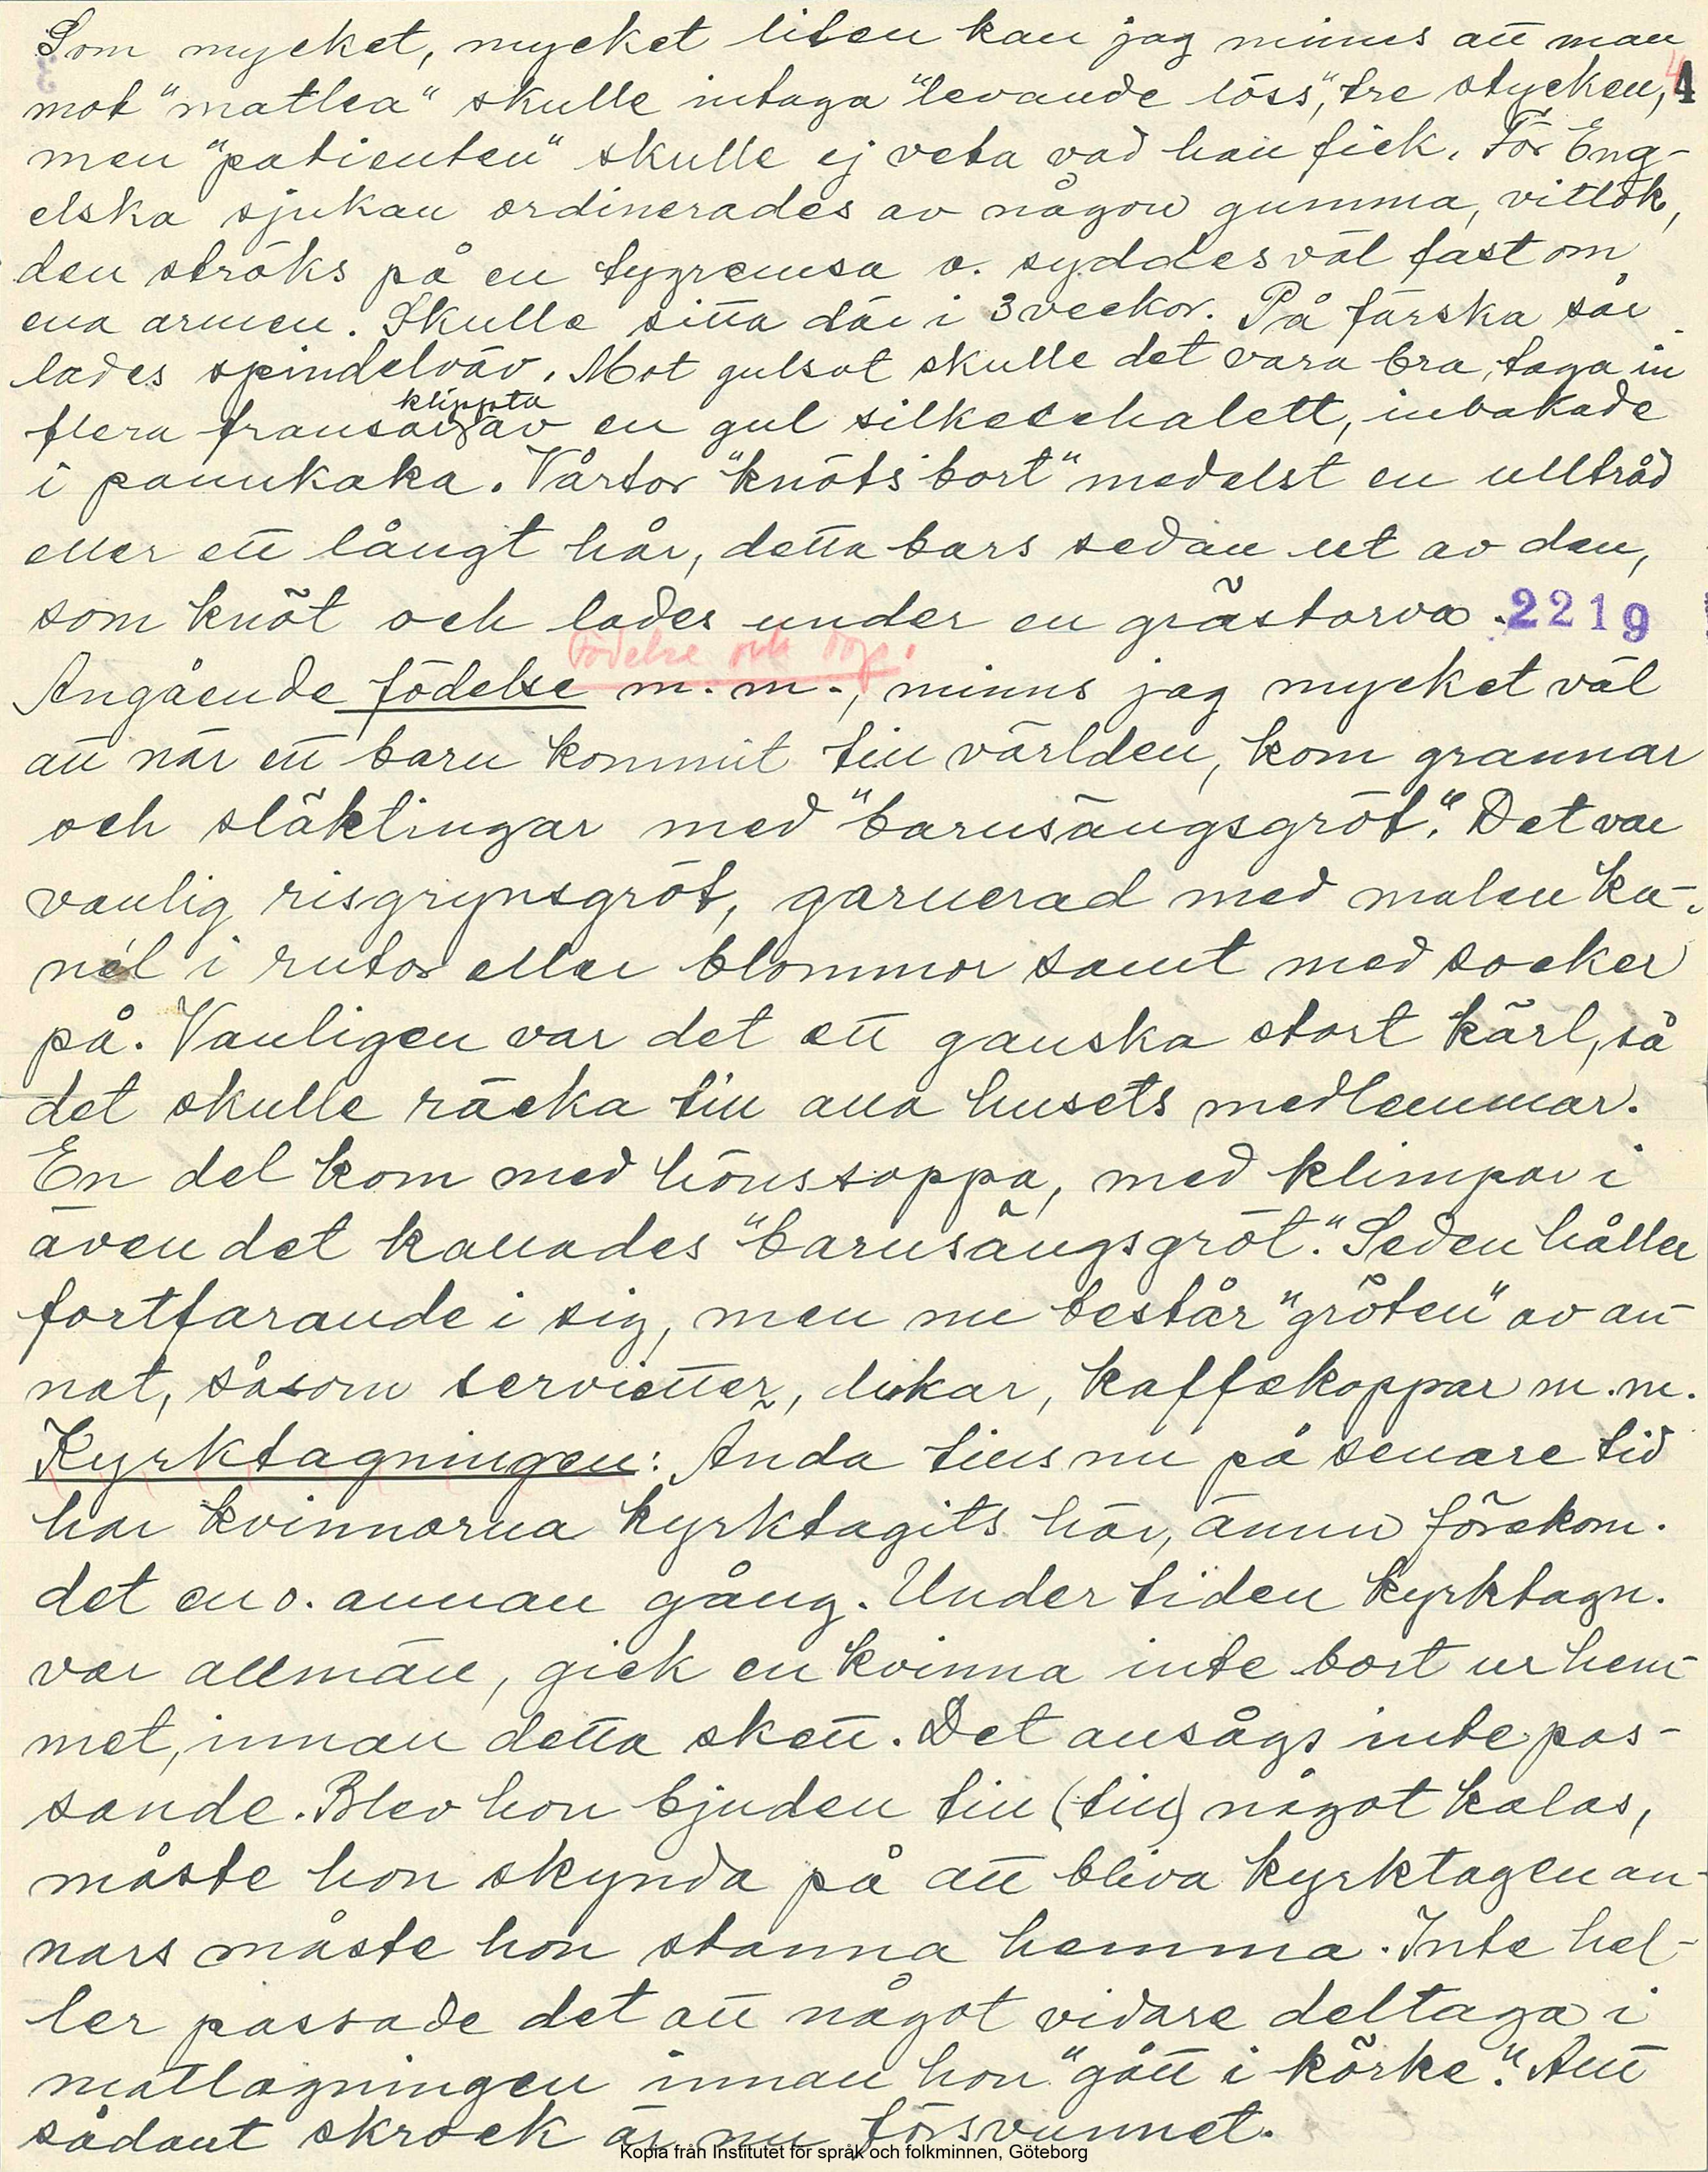 Som mycket, mycket liten kan jag minnas att man
4
mot "matlea" skulle intaga "levande löss", tre stycken,
men "patienten" skulle ej veta vad han fick. För Eng-
elska sjukan ordinerades av någon gumma, vitlök,
den ströks på en tygremsa o. syddes väl fast om
ena armen. Skulle sitta där i 3 veckor. På färska sår
lades spindelväv. Mot gulsot skulle det vara bra, taga in
klippta
flera fransar av en gul silkeschalett, inbakade
i pannkaka. Vårtor "knöts bort" medelst en ulltråd
eller ett långt hår, detta bars sedan ut av den,
som knöt och lades under en grästorva. 2219
Födelse och dop.
Angående födelse m.m., minns jag mycket väl
att när ett barn kommit till världen, kom grannar
och släktingar med "barnsängsgröt". Det var
vanlig risgrynsgröt, garnerad med malen ka-
nél i rutor eller blommor samt med socker
på. Vanligen var det ett ganska stort kärl, så
det skulle räcka till alla husets medlemmar.
En del kom med hönssoppa, med klimpar i
även det kallades "barnsängsgröt". Seden håller
fortfarande i sig, men nu består "gröten" av an-
nat, såsom servietter, dukar, kaffekoppar m.m.
Kyrktagningen: Ända tills nu på senare tid
har kvinnorna kyrktagits här, ännu förekom.
det en o. annan gång. Under tiden kyrktagn.
var allmän, gick en kvinna inte bort ur hem-
met, innan detta skett. Det ansågs inte pas-
sande. Blev hon bjuden till (till) något kalas,
måste hon skynda på att bliva kyrktagen an-
nars måste hon stanna hemma. Inte hel-
ler passade det att något vidare deltaga i
matlagningen innan hon "gått i körke". Allt
sådant skrock är nu försvunnet.
Kopia från Institutet för språk och folkminnen, Göteborg